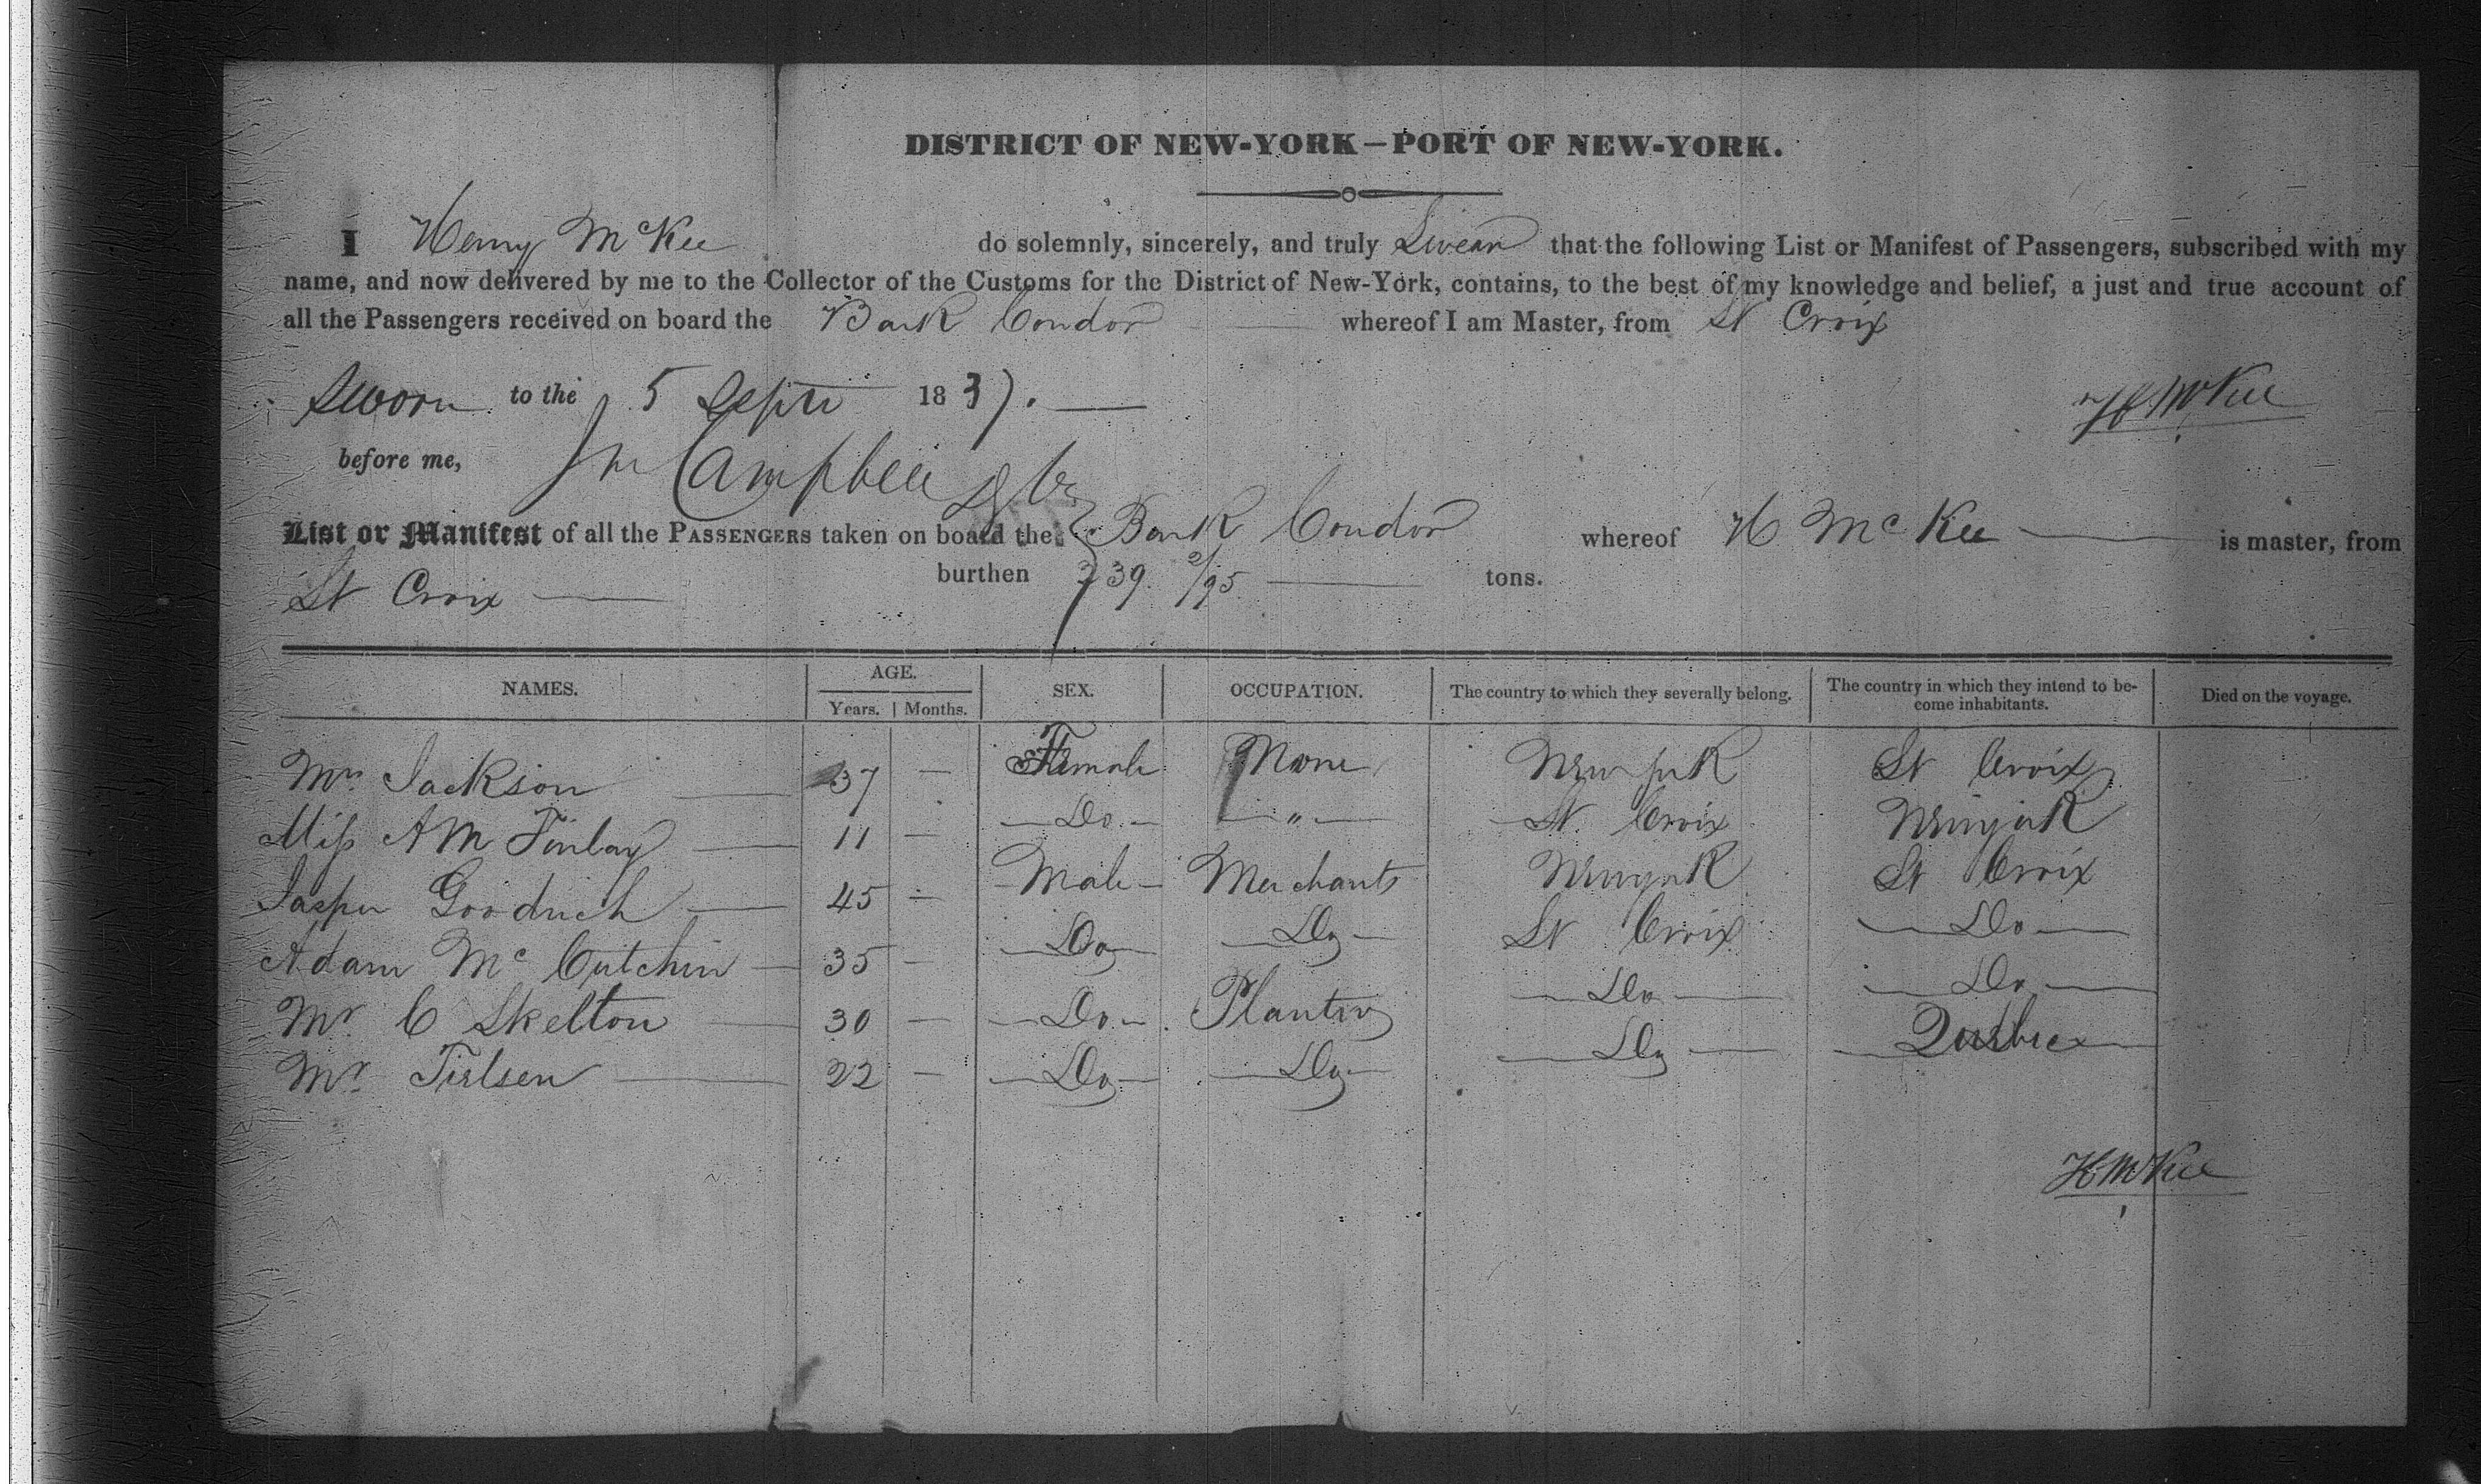 DISTRICT OF NEW-YORK—PORT OF NEW-YORK.
I Henry McKee do solemnly, sincerely, and truly Swear that the following List or Manifest of Passengers, subscribed with my
name, and now delivered by me to the Collector of the Customs for the District of New-York, contains, to the best of my knowledge and belief, a just and true account of
all the Passengers received on board the Bark Condor whereof I am Master, from St Croix
Sworn to the 5 Septr 1837. H McKee
before me, Jn Campbell
List or Manifest of all the PASSENGERS taken on board the Bark Condor whereof H McKee is master, from
St Croix burthen 339 2/95 tons.
NAMES. AGE. Years. Months. SEX. OCCUPATION. The country to which they severally belong. The country in which they intend to become inhabitants. Died on the voyage.
Mrs Jackson 37 — Female None New york St Croix
Miss A M Finlay 11 — Do " St Croix New york
Jasper Goodrich 45 — Male Merchants New york St Croix
Adam McCutchin 35 — Do Do St Croix Do
Mr C Skelton 30 — Do Planter Do Do
Mr 22 — Do Do Do Quebec
H McKee